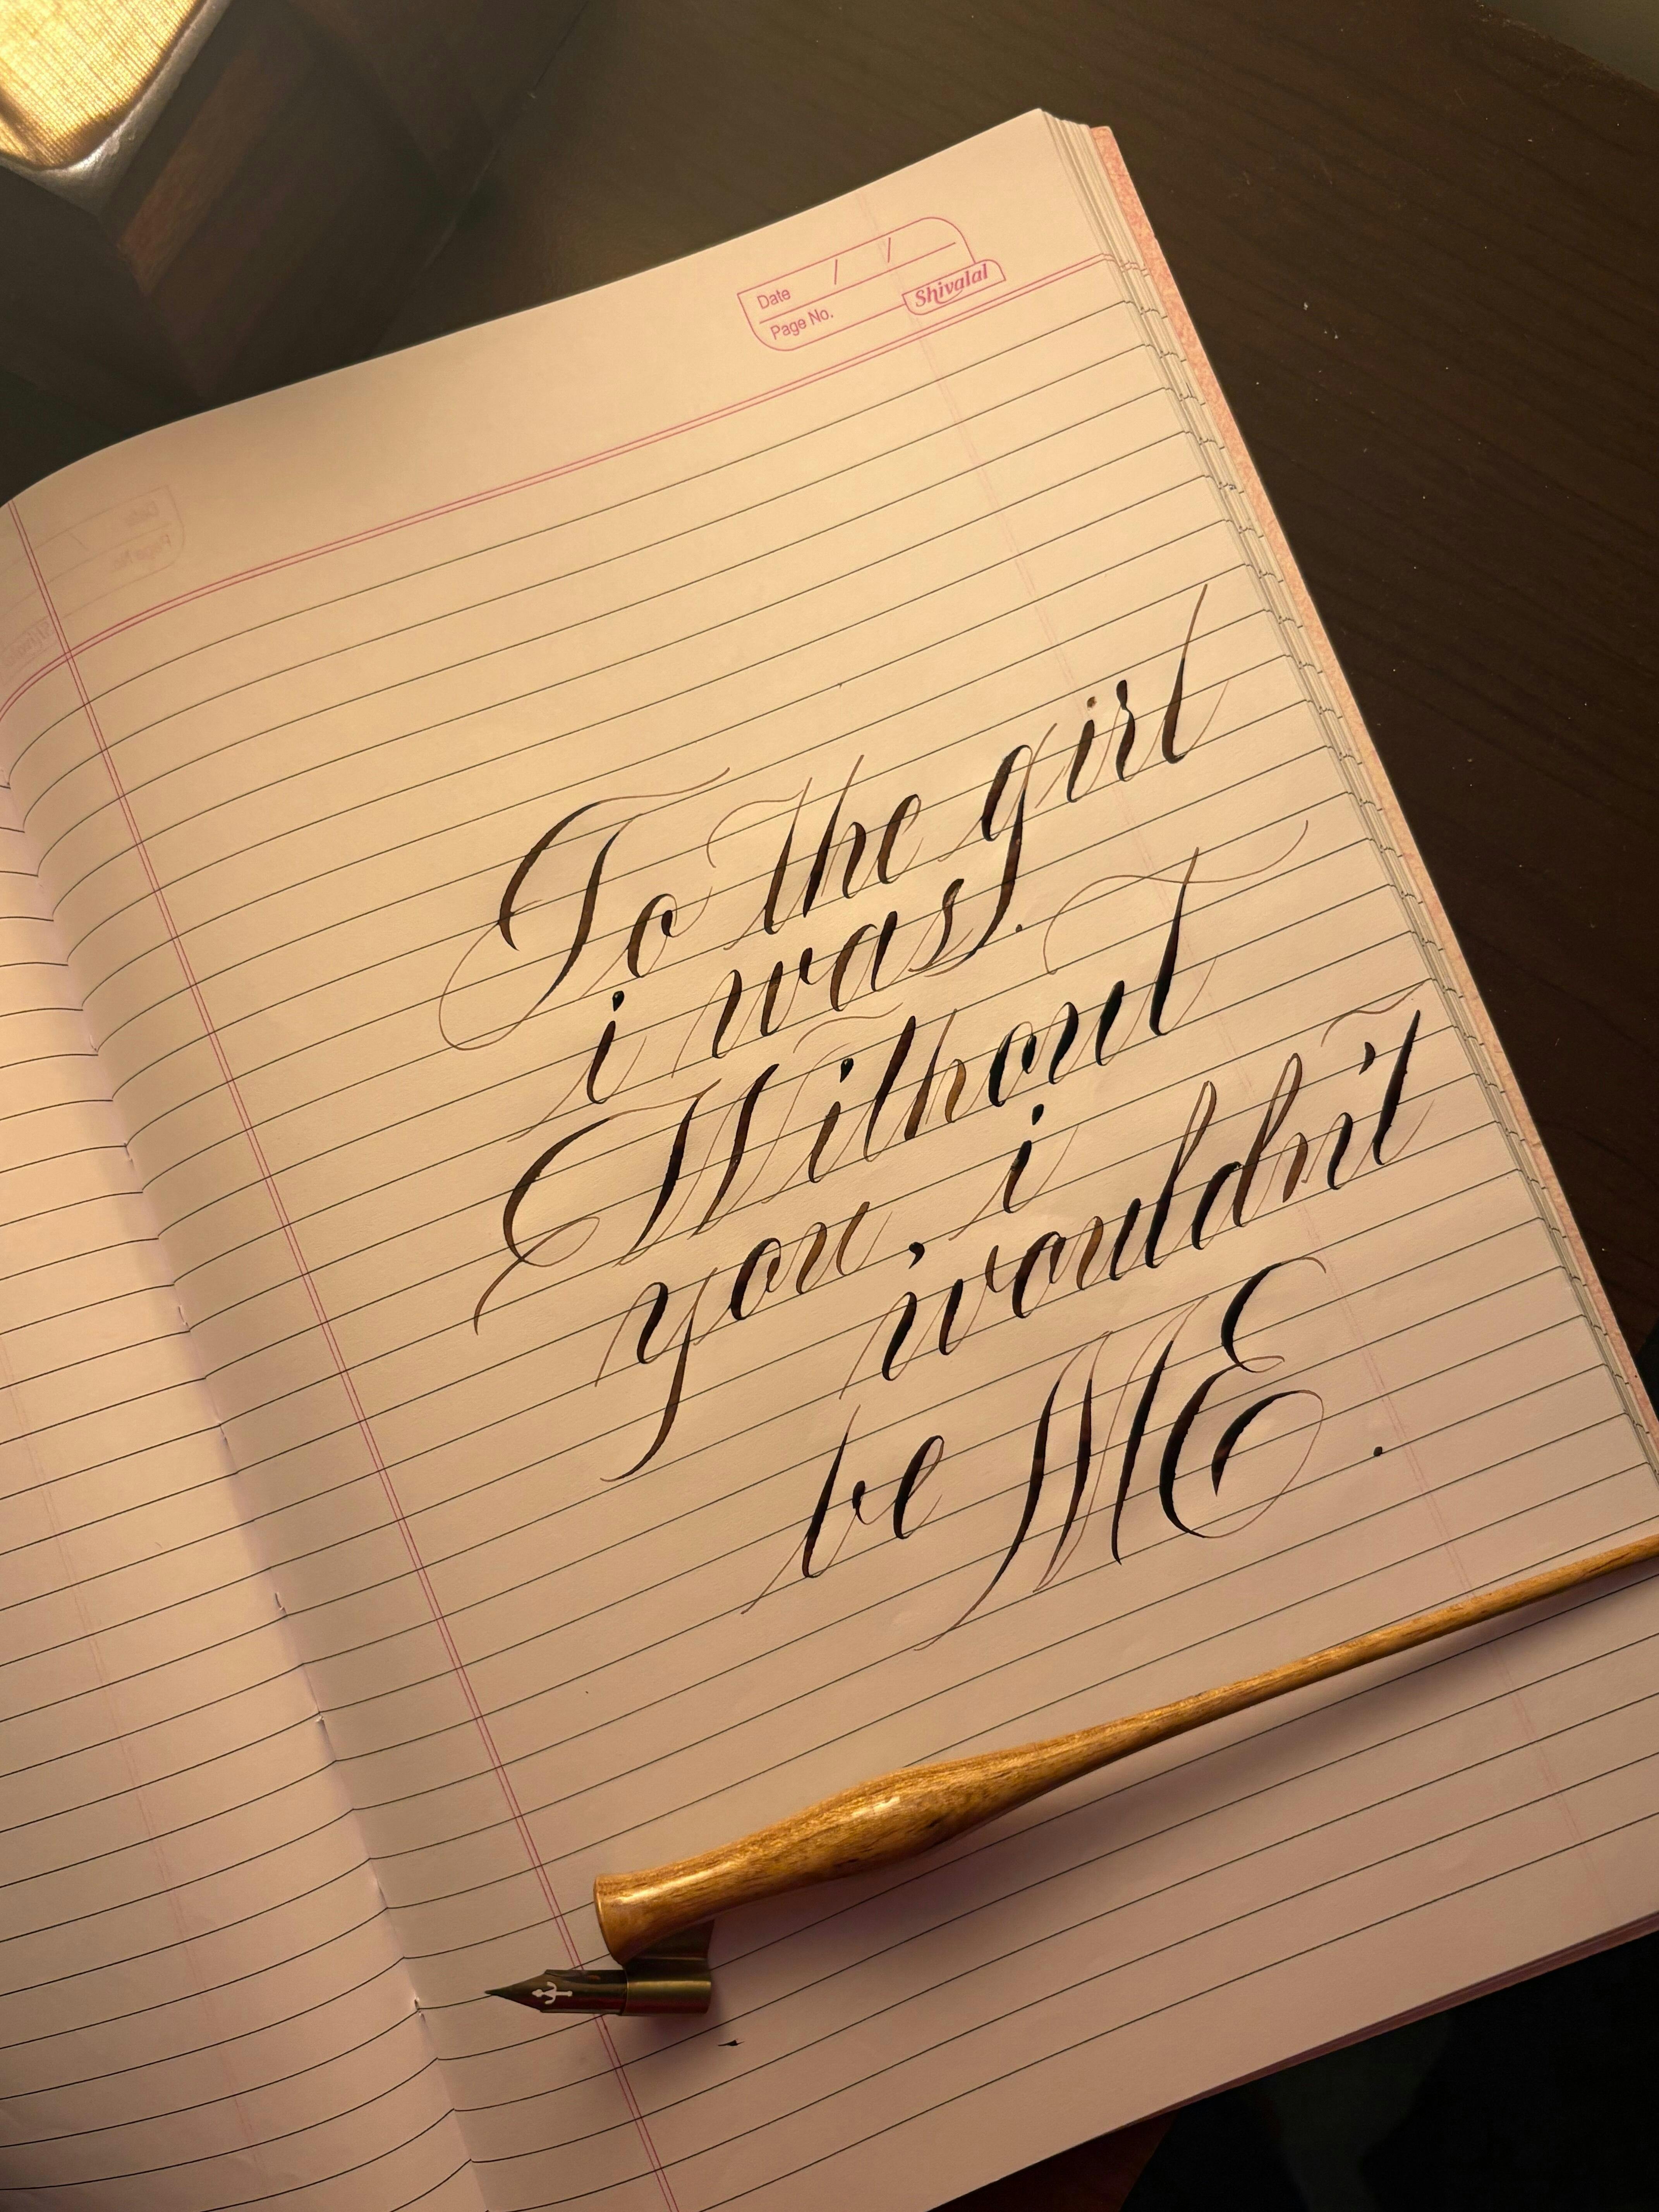 Date / /
Page No.
Shivalal
To the girl
i was.
Without
you, i
wouldn't
be ME.